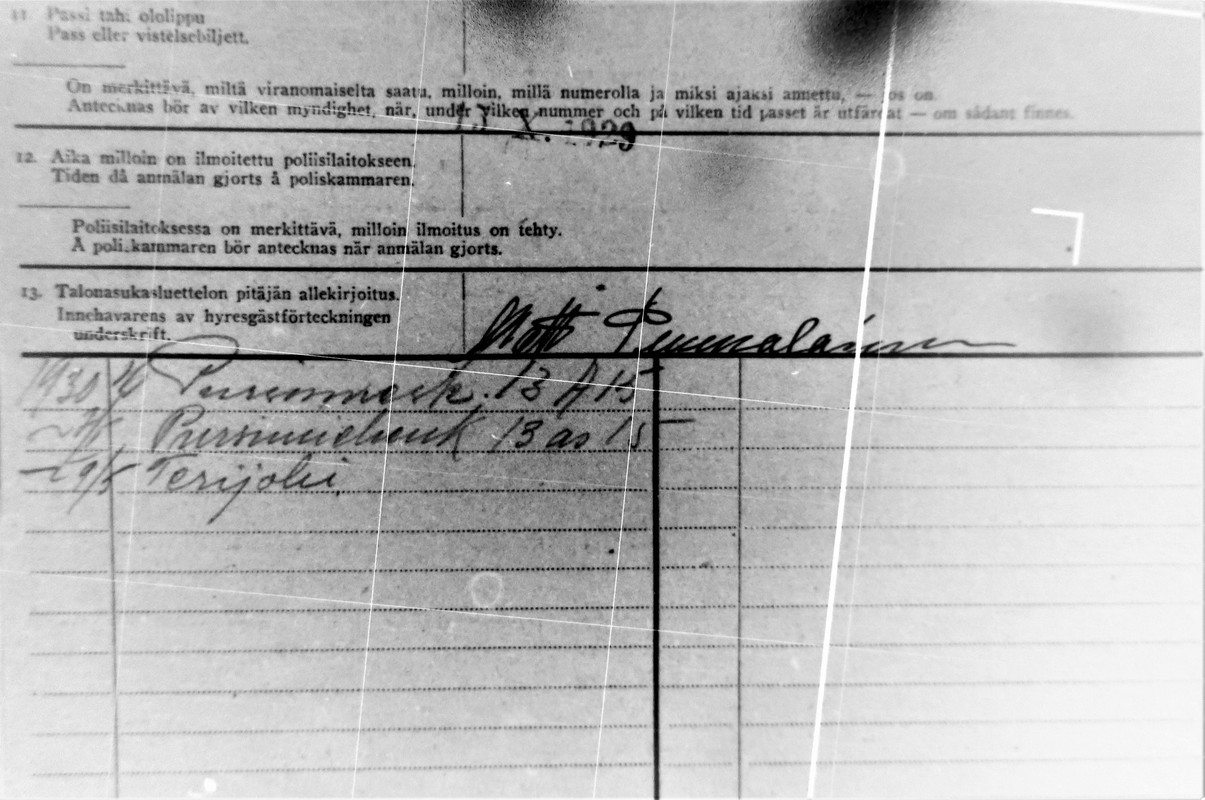 11 Passi tah. ololippu
Pass eller vistelsebiljett.
On merkittävä, miltä viranomaiselta saatu, milloin, millä numerolla ja miksi ajaksi annettu, — jos on
Antecknas bör av vilken myndighet, när, under vilken nummer och på vilken tid passet är utfärdat — om sådant finnes.
X. 1929
12. Aika milloin on ilmoitettu poliisilaitokseen.
Tiden då anmälan gjorts å poliskammaren.
Poliisilaitoksessa on merkittävä, milloin ilmoitus on tehty.
Å poliskammaren bör antecknas när anmälan gjorts.
13. Talonasukasluettelon pitäjän allekirjoitus.
Innehavarens av hyresgästförteckningen
underskrift.
Matti
1930 13 A 15
13 as 15
Terijoki